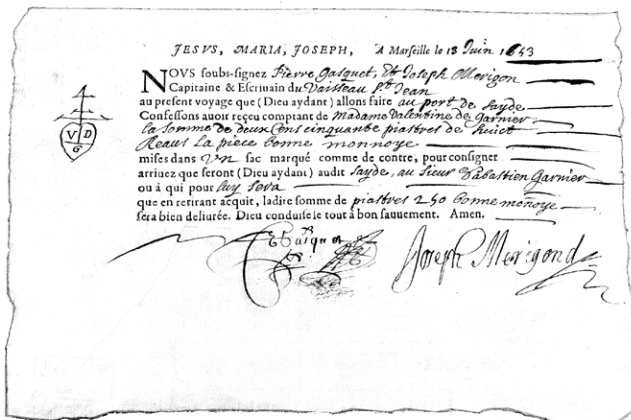 JESVS, MARIA, JOSEPH, A Marseille le 18 Juin 1653
NOVS soubs-signez Pierre gasquet, Et Joseph Merigon
Capitaine & Escriuain du Vaisseau St Jean
au present voyage que (Dieu aydant) allons faire au port de Sayde
Confessons auoir reçeu comptant de Madame Valentine de Garnier
la somme de deux Cens cinquante piastres de huict
Reaus La piece bonne monnoye
mises dans Vn sac marqué comme de contre, pour consigner
arriuez que seront (Dieu aydant) audit Sayde, au Sieur Sabastien Garnier
ou à qui pour luy sera
que en retirant acquit, ladire somme de piastres 250 bonne monoye
sera bien deliurée. Dieu conduise le tout à bon sauuement. Amen.
V D
G
Gasquet
Joseph Merigond